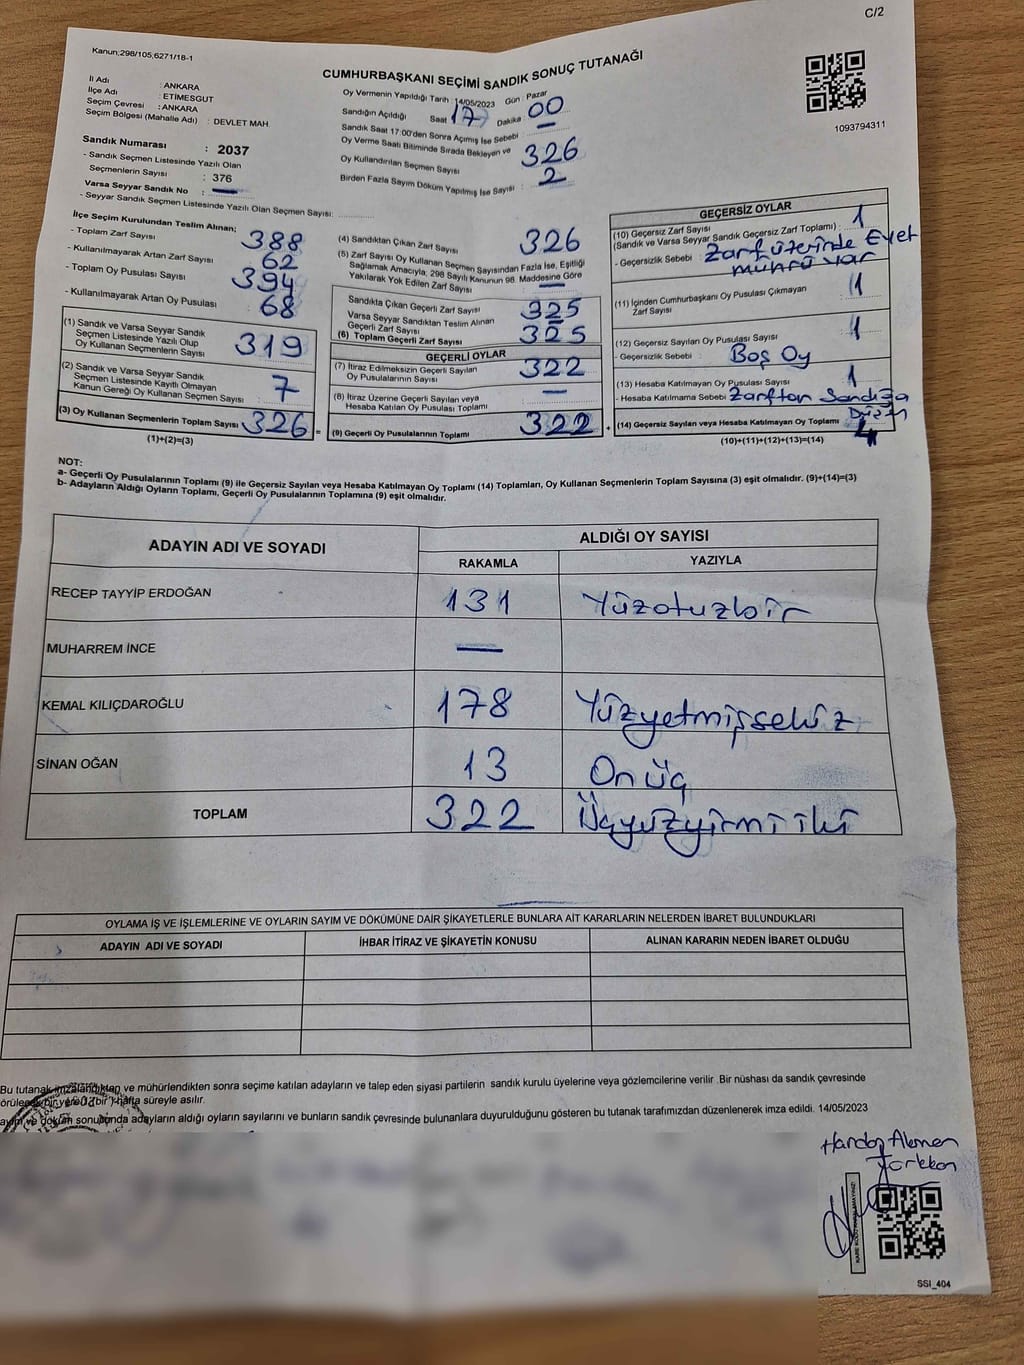 C/2
Kanun;298/105;6271/18-1
CUMHURBAŞKANI SEÇİMİ SANDIK SONUÇ TUTANAĞI
1093794311
İl Adı : ANKARA
İlçe Adı : ETİMESGUT
Seçim Çevresi : ANKARA
Seçim Bölgesi (Mahalle Adı) : DEVLET MAH.
Sandık Numarası : 2037
- Sandık Seçmen Listesinde Yazılı Olan
Seçmenlerin Sayısı : 376
Varsa Seyyar Sandık No : —
- Seyyar Sandık Seçmen Listesinde Yazılı Olan Seçmen Sayısı:
Oy Vermenin Yapıldığı Tarih : 14/05/2023 Gün : Pazar
Sandığın Açıldığı Saat 17 Dakika 00
Sandık Saat 17:00'den Sonra Açılmış İse Sebebi : —
Oy Verme Saati Bitiminde Sırada Bekleyen ve
Oy Kullandırılan Seçmen Sayısı 326
Birden Fazla Sayım Döküm Yapılmış İse Sayısı : 2
İlçe Seçim Kurulundan Teslim Alınan;
- Toplam Zarf Sayısı 388
- Kullanılmayarak Artan Zarf Sayısı 62
- Toplam Oy Pusulası Sayısı 394
- Kullanılmayarak Artan Oy Pusulası 68
(1) Sandık ve Varsa Seyyar Sandık
Seçmen Listesinde Yazılı Olup
Oy Kullanan Seçmenlerin Sayısı 319
(2) Sandık ve Varsa Seyyar Sandık
Seçmen Listesinde Kayıtlı Olmayan
Kanun Gereği Oy Kullanan Seçmen Sayısı : 7
(3) Oy Kullanan Seçmenlerin Toplam Sayısı 326 =
(1)+(2)=(3)
(4) Sandıktan Çıkan Zarf Sayısı 326
(5) Zarf Sayısı Oy Kullanan Seçmen Sayısından Fazla İse, Eşitliği
Sağlamak Amacıyla; 298 Sayılı Kanunun 98. Maddesine Göre
Yakılarak Yok Edilen Zarf Sayısı : —
Sandıkta Çıkan Geçerli Zarf Sayısı 325
Varsa Seyyar Sandıktan Teslim Alınan
Geçerli Zarf Sayısı
(6) Toplam Geçerli Zarf Sayısı 325
GEÇERLİ OYLAR
(7) İtiraz Edilmeksizin Geçerli Sayılan
Oy Pusulalarının Sayısı 322
(8) İtiraz Üzerine Geçerli Sayılan veya
Hesaba Katılan Oy Pusulası Toplamı —
(9) Geçerli Oy Pusulalarının Toplamı 322 +
GEÇERSİZ OYLAR
(10) Geçersiz Zarf Sayısı 1
(Sandık ve Varsa Seyyar Sandık Geçersiz Zarf Toplamı) :
- Geçersizlik Sebebi Zarf üzerinde Evet
mührü var
(11) İçinden Cumhurbaşkanı Oy Pusulası Çıkmayan
Zarf Sayısı 1
(12) Geçersiz Sayılan Oy Pusulası Sayısı 1
- Geçersizlik Sebebi : Boş Oy
(13) Hesaba Katılmayan Oy Pusulası Sayısı 1
- Hesaba Katılmama Sebebi Zarftan Sandığa
(14) Geçersiz Sayılan veya Hesaba Katılmayan Oy Toplamı 4
(10)+(11)+(12)+(13)=(14)
NOT:
a- Geçerli Oy Pusulalarının Toplamı (9) ile Geçersiz Sayılan veya Hesaba Katılmayan Oy Toplamı (14) Toplamları, Oy Kullanan Seçmenlerin Toplam Sayısına (3) eşit olmalıdır. (9)+(14)=(3)
b- Adayların Aldığı Oyların Toplamı, Geçerli Oy Pusulalarının Toplamına (9) eşit olmalıdır.
ADAYIN ADI VE SOYADI ALDIĞI OY SAYISI
RAKAMLA YAZIYLA
RECEP TAYYİP ERDOĞAN 131 Yüzotuzbir
MUHARREM İNCE —
KEMAL KILIÇDAROĞLU 178 Yüzyetmişsekiz
SİNAN OĞAN 13 On üç
TOPLAM 322 Üçyüzyirmi iki
OYLAMA İŞ VE İŞLEMLERİNE VE OYLARIN SAYIM VE DÖKÜMÜNE DAİR ŞİKAYETLERLE BUNLARA AİT KARARLARIN NELERDEN İBARET BULUNDUKLARI
ADAYIN ADI VE SOYADI İHBAR İTİRAZ VE ŞİKAYETİN KONUSU ALINAN KARARIN NEDEN İBARET OLDUĞU
Bu tutanak imzalandıktan ve mühürlendikten sonra seçime katılan adayların ve talep eden siyasi partilerin sandık kurulu üyelerine veya gözlemcilerine verilir .Bir nüshası da sandık çevresinde
bir yere (bir) hafta süreyle asılır.
ve döküm sonucunda adayların aldığı oyların sayılarını ve bunların sandık çevresinde bulunanlara duyurulduğunu gösteren bu tutanak tarafımızdan düzenlenerek imza edildi. 14/05/2023
SSI_404